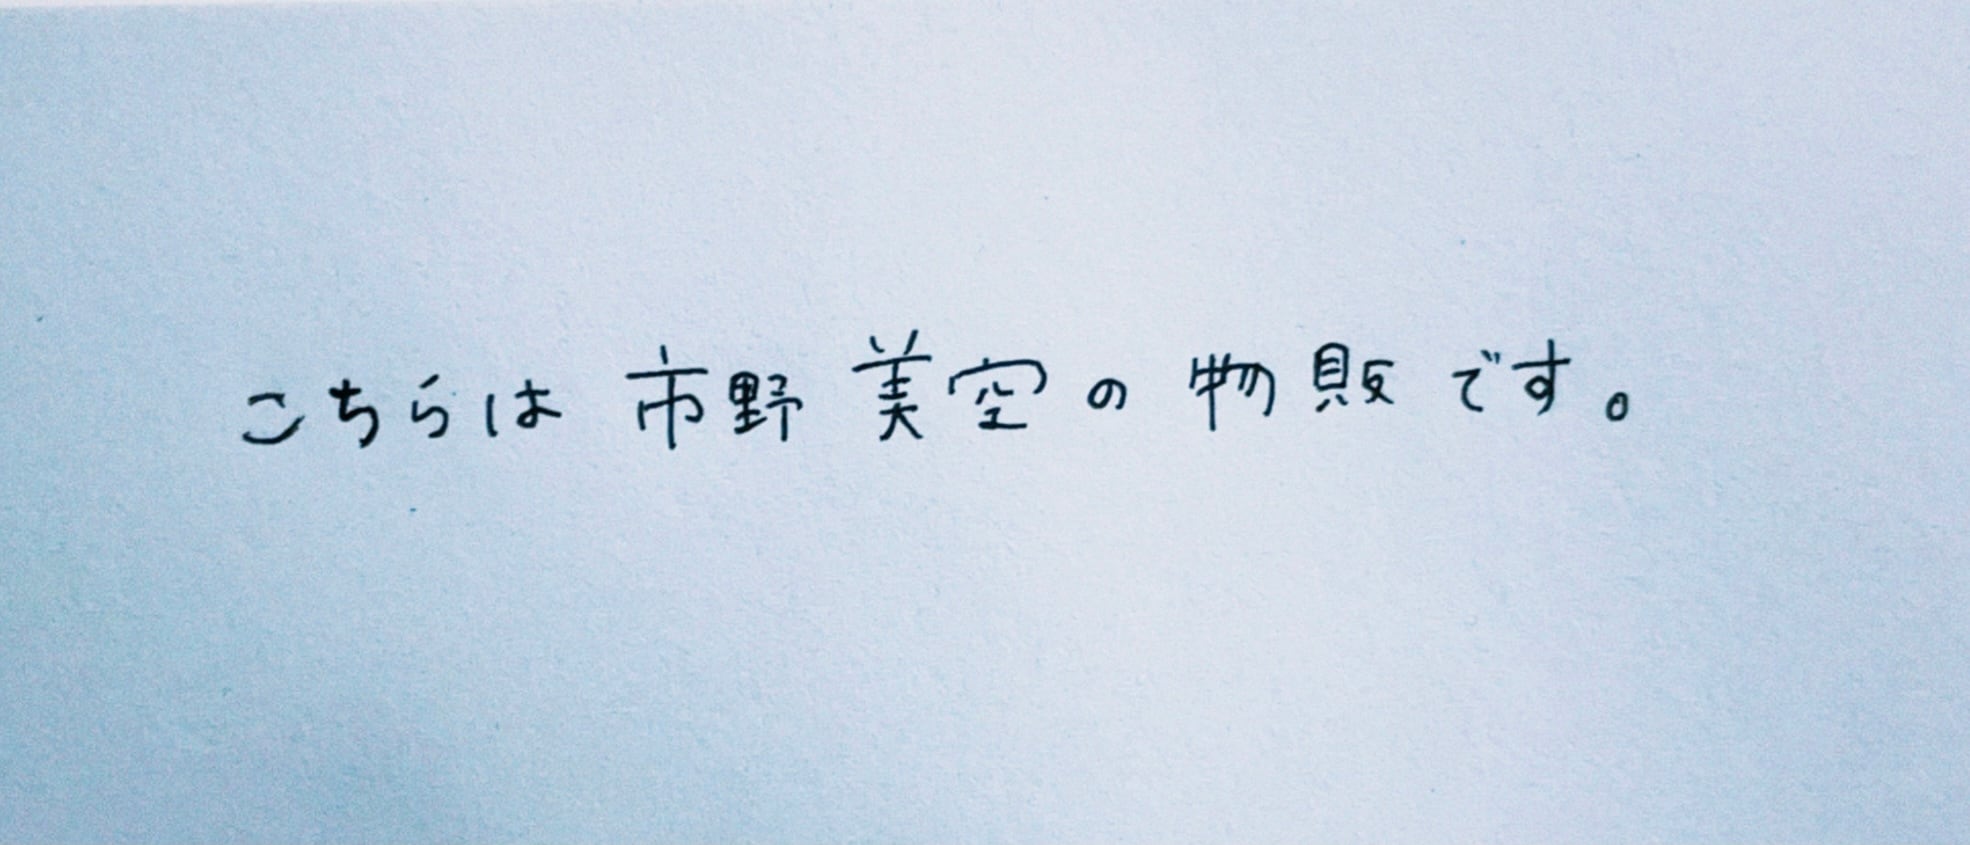 こちらは市野美空の物販です。